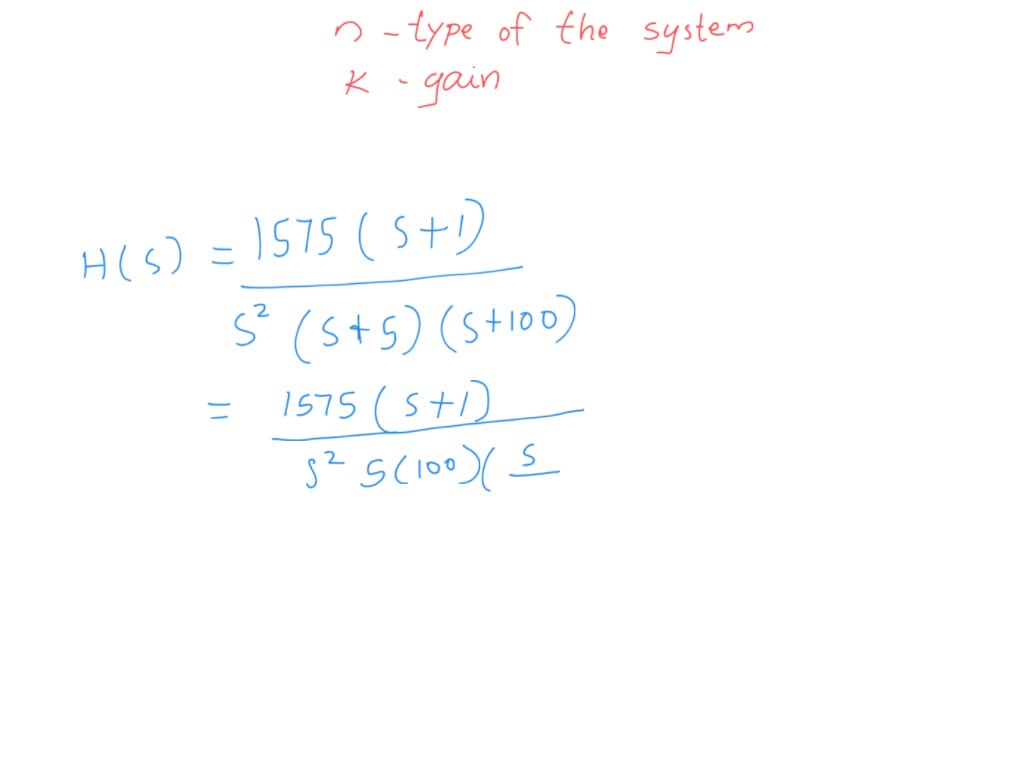 n - type of the system
K - gain
H(s) = 1575 ( s+1)
s² (s+5) (s+100)
= 1575 ( s+1)
s² 5(100)( s